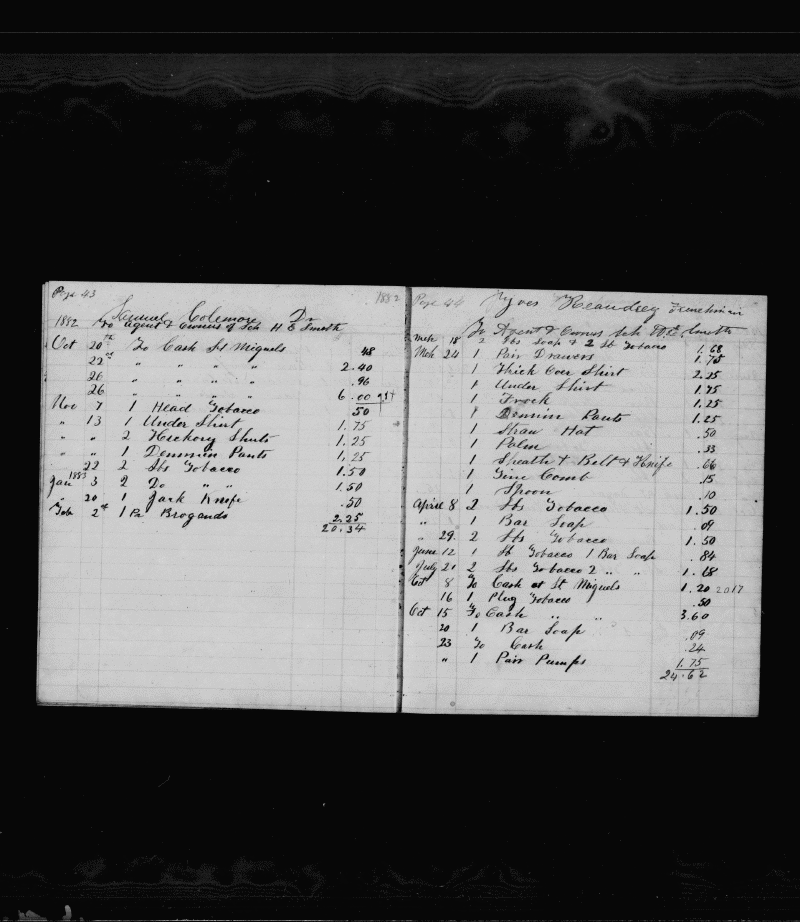 Page 43
1882
Samuel Colemore Dr
1882 To Agent & Owners of Sch H E Smoth
Oct 20th To Cash St Miguels 48
23rd " " " " 2.40
26 " " " " .96
26 " " " " 6.00
Nov 7 1 Head Tobacco 50
" 13 1 Under Shirt 1.75
" " 2 Hickory Shirts 1.25
" " 1 Demmin Pants 1.25
22 2 lbs Tobacco 1.50
1883
Jan 3 2 Do " " 1.50
" 20 1 Jack Knife .50
Feb 2nd 1 Pr Brogands 2.25
20.34
Page 44 Yves
To Agent & Owners Sch
Mch 18 2 lbs Soap & 2 lb Tobacco 1.68
Mch 24 1 Pair Drawers 1.75
1 Thick Over Shirt 2.25
1 Under Shirt 1.75
1 Frock 1.25
1 Demmin Pants 1.25
1 Straw Hat .50
1 Palm .33
1 Sheath & Belt & Knife .66
1 Fine Comb .15
1 Spoon .10
April 8 2 lbs Tobacco 1.50
" 1 Bar Soap .09
" 29 2 lbs Tobacco 1.50
June 12 1 lb Tobacco 1 Bar Soap .84
July 21 2 lbs Tobacco 2 " " 1.68
Oct 8 To Cash at St Miguels 1.20 2017
16 1 Plug Tobacco .50
Oct 15 To Cash " " 3.60
20 1 Bar Soap .09
23 To Cash .24
" 1 Pair Pumps 1.75
24.62